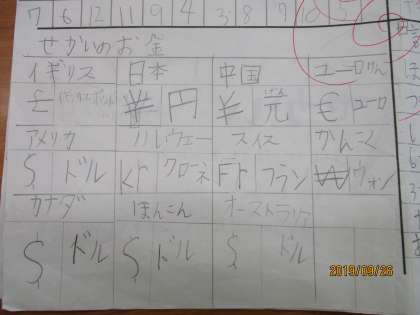 7 6 12 11 9 4 3 8 9 10
せかいのお金
イギリス 日本 中国 ユーロけん
£ ¥ 円 ¥ 元 げん € ユーロ
アメリカ ノルウェー スイス かんこく
$ ドル kr クローネ Fr フラン ₩ ウォン
カナダ ほんこん オーストラリア
$ ドル $ ドル $ ドル
2019/09/26